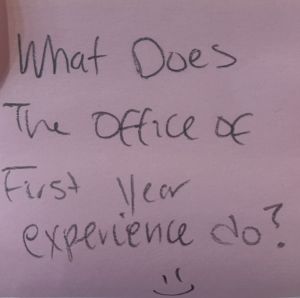 What Does
The Office of
First Year
experience do?